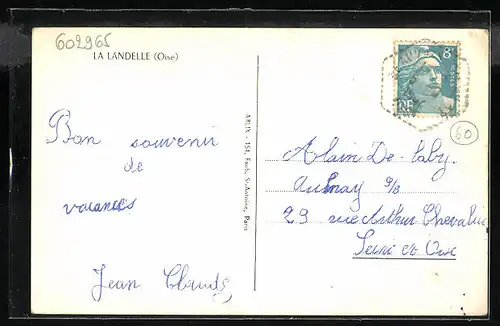 602965
LA LANDELLE (Oise)
8F
RF
60
Bon souvenir
de
vacances
Jean Claude
ARLIX - 151, Faub. St-Antoine, Paris
Alain De
Aulnay s/b
29 rue Arthur Chevalier
Seine et Oise